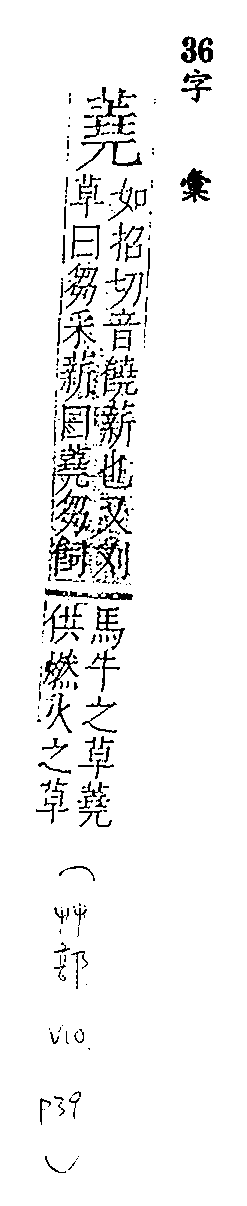 36字 彙
蕘
如招切音饒薪也又刈
草曰芻采薪曰蕘芻飼
馬牛之草蕘
供燃火之草
(艸部 V10. P39)